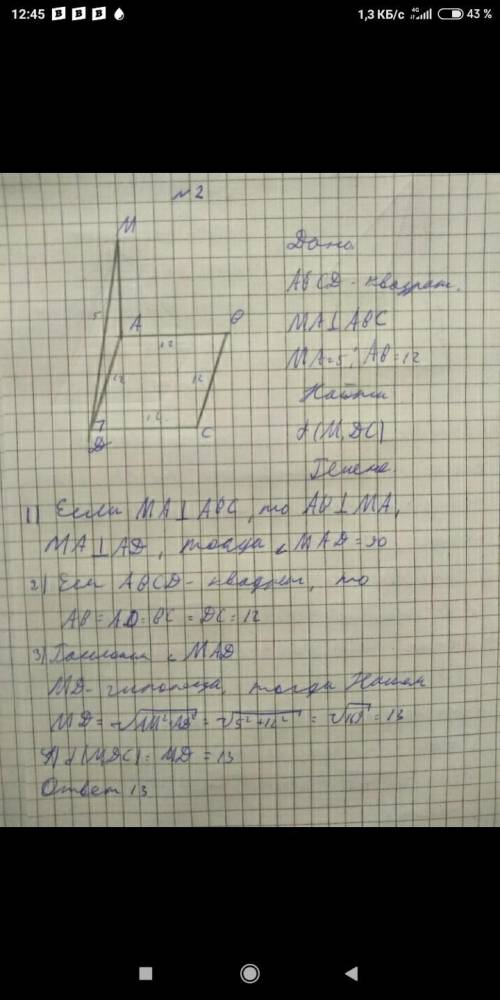 12:45 B B B 1,3 КБ/с 4G 43 %
№2
M
5
A
B
12
12
12
12
D
C
Дано
ABCD - квадрат.
MA⊥ABC
MA=5; AB=12
Найти
d(M,DC)
1) Если MA⊥ABC, то AB⊥MA,
MA⊥AD, тогда ∠MAD=90
2) Если ABCD - квадрат, то
AB=AD=BC=DC=12
3) ∠MAD
MD - гипотенуза, тогда
MD= = √5²+12² = √169 = 13
4) d(MDC)=MD=13
Ответ 13